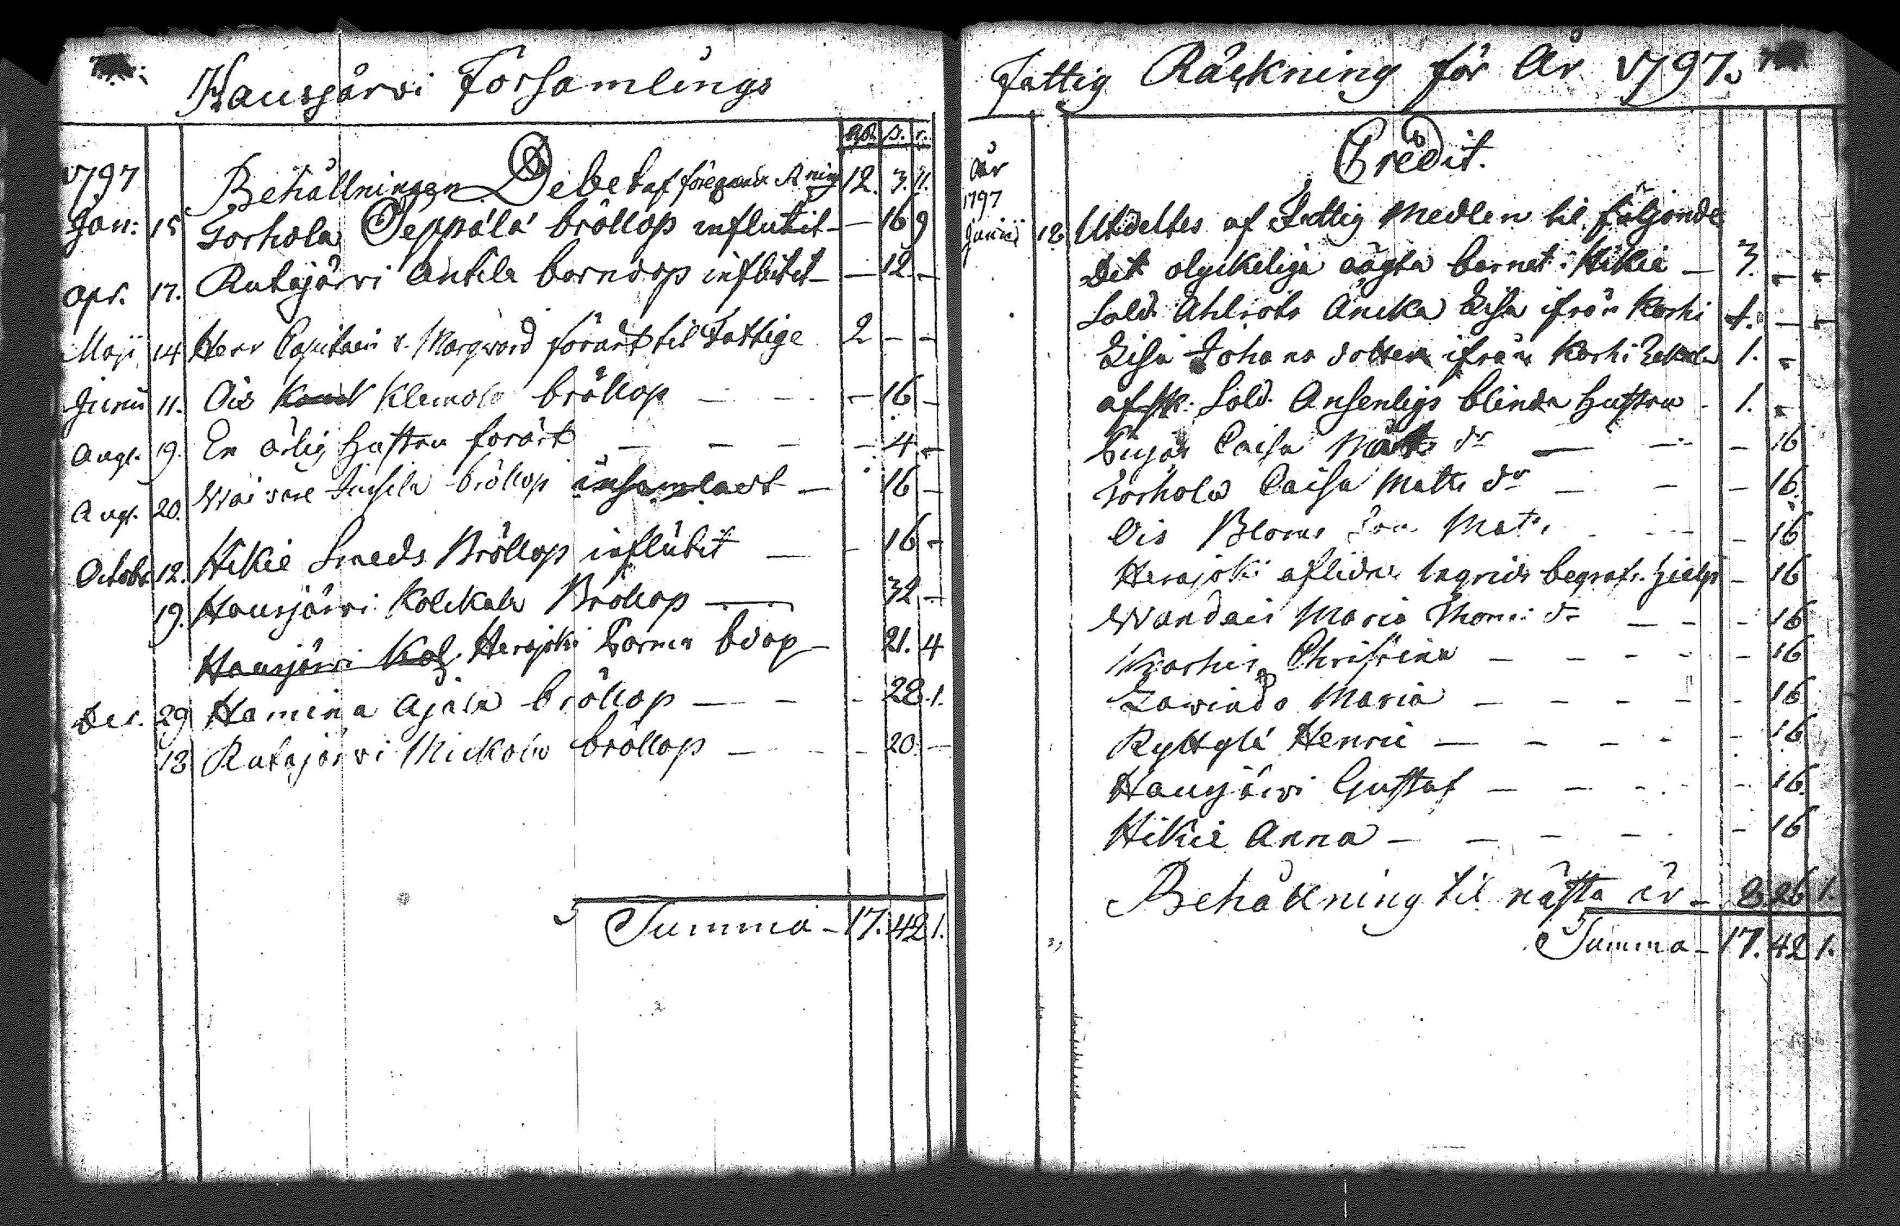 Hausjärvi Församlings
Rd. s. r.
Debet
1797 Behållningen af föregående Rning 12. 3. 11.
Jan: 15 Torhola Seppälä bröllop influtit — — 16 9
Apr. 17. Rutajärvi Anttila barndop influtit — — 12 —
Maji 14 Herr Capitain v. Morgward förärt til Fattige 2 — —
Junii 11. Ois Klemola bröllop — — — 16 —
Aug. 19. En ärlig Hustru förärt — — — — 4 —
Aug. 20. bröllop insamladt — 16 —
Octobr. 12. Hikie Smeds Bröllop influtit — — 16 —
19. Hausjärvi Kolckala Bröllop — 32 —
Hausjärvi Kol. Herajoki Torner bdop — 21. 4
Dec. 29 Hamina Ajala bröllop — — — 28. 1.
13 Rutajärvi Mickola bröllop — — — 20. —
Summa — 17. 42 1.
Fattig Räckning för År 1797.
Credit.
År
1797
Junii 18 Utdeltes af Fattig Medlen til följande
Det olyckeliga oägta barnet i Hikie — 3. — —
Sold. Ahlrots Anika Lisa ifrån Karhi 1. — —
Lisa Johans dotter ifrån Karhi 1. —
afsk. Sold. Ansenligs blinda Hustru 1. —
Caisa Matts dr — — — 16
Torhola Caisa Matts dr — — — 16.
Ois Bloms Son Mats — 16
Herajoki aflidne Ingrids begrafn. hjelp — 16
Wandais Maria Thom: dr — — — 16
Karhis Christina — — — — — 16
Maria — — — — — 16
Ryttylä Henric — — — — — 16
Hausjärvi Gustaf — — — — 16.
Hikie Anna — — — — — 16
Behållning til nästa år — 8 26 1.
Summa — 17. 42 1.